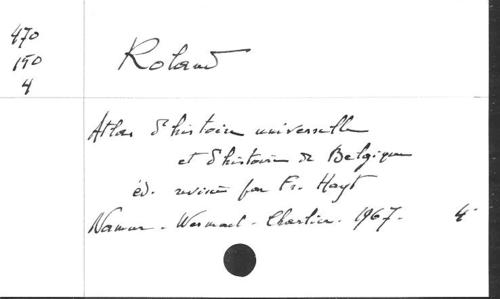 470
190
4
Roland
Atlas d'histoire universelle
et d'histoire de Belgique
éd. revisée par Fr. Hayt
Namur - Wesmael - Charlier. 1967. 4°